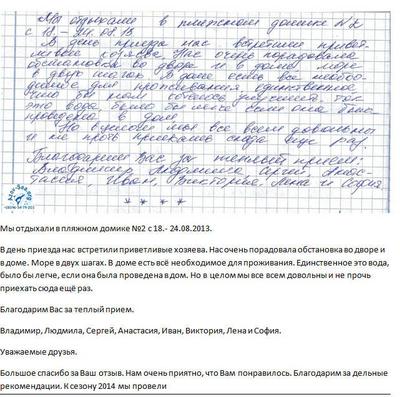 Мы отдыхали в пляжном домике №2
с 18. - 24.08.13.
В день приезда нас встретили привет-
ливые хозяева. Нас очень порадовала
обстановка во дворе и в доме. Море
в двух шагах. В доме есть все необхо-
димое для проживания. Единственное
это вода, было бы легче если она была
проведена в дом.
Но в целом мы все всем довольны
и не прочь приехать сюда еще раз.
Благодарим Вас за теплый прием:
Владимир, Людмила, Сергей, Анас-
тасия, Иван, Виктория, Лена и София.
* * * *
Мы отдыхали в пляжном домике №2 с 18.- 24.08.2013.
В день приезда нас встретили приветливые хозяева. Нас очень порадовала обстановка во дворе и
в доме. Море в двух шагах. В доме есть всё необходимое для проживания. Единственное это вода,
было бы легче, если она была проведена в дом. Но в целом мы все всем довольны и не прочь
приехать сюда ещё раз.
Благодарим Вас за теплый прием.
Владимир, Людмила, Сергей, Анастасия, Иван, Виктория, Лена и София.
Уважаемые друзья.
Большое спасибо за Ваш отзыв. Нам очень приятно, что Вам понравилось. Благодарим за дельные
рекомендации. К сезону 2014 мы провели